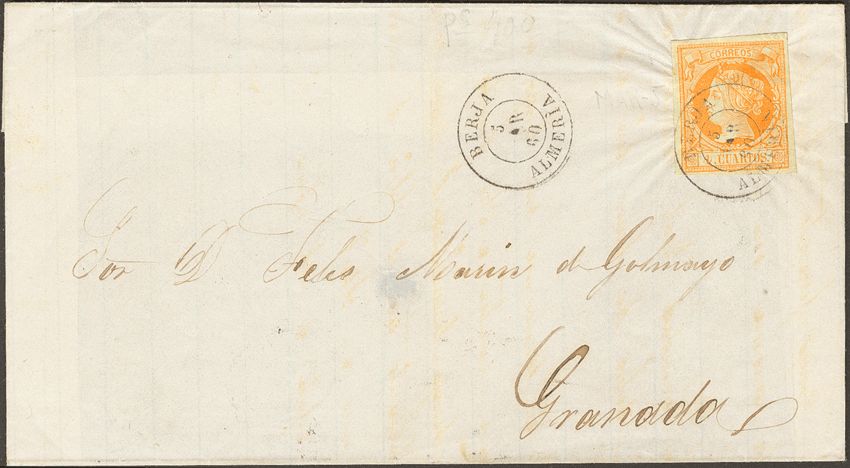 CORREOS
4 CUARTOS
BERJA
5
60
ALMERIA
Sor D Felis Marin de Golmayo
Granada